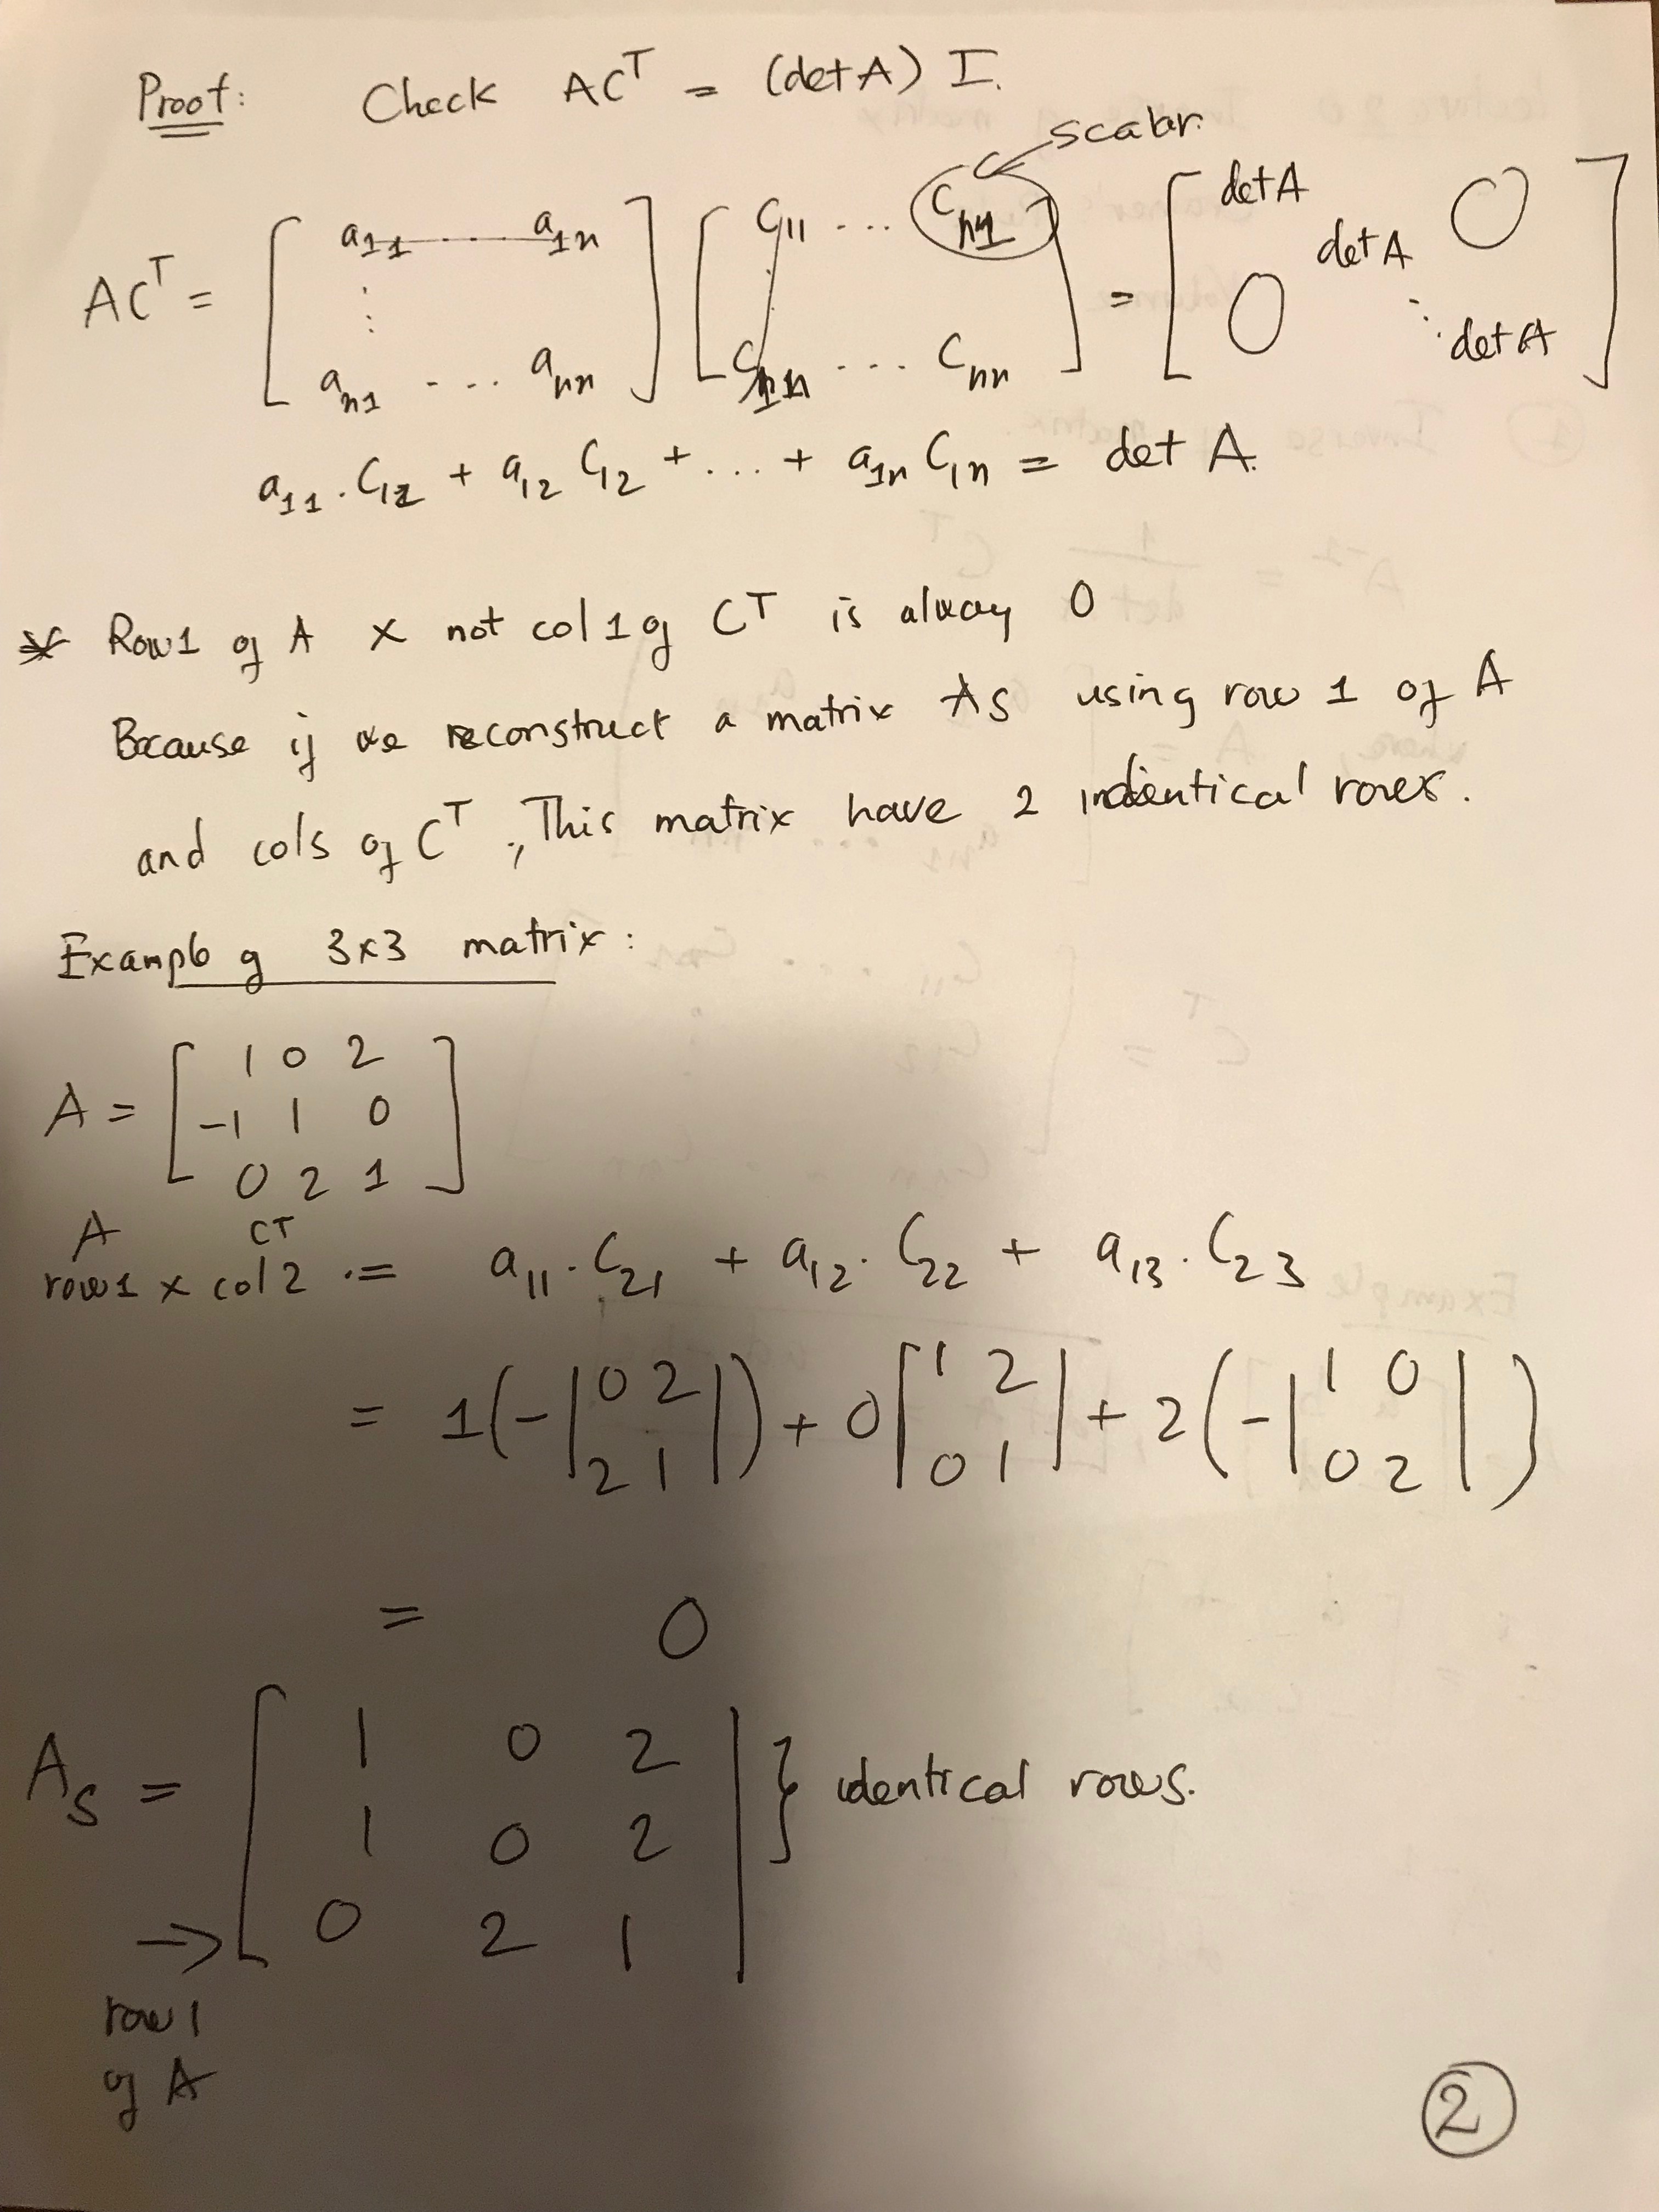 Proof: Check AC^T = (det A) I.
scalar.
AC^T = [ a11 ..... a1n ⋮ an1 ... ann ] [ C11 ... Cn1 ⋮ C1n ... Cnn ] = [ det A det A ⋱ det A 0 0 ]
a11 . C11 + a12 C12 + ... + a1n C1n = det A.
* Row1 of A x not col 1 of C^T is alway 0
Because if we reconstruct a matrix As using row 1 of A
and cols of C^T, This matrix have 2 indentical rows.
Example of 3x3 matrix:
A = [ 1 0 2
-1 1 0
0 2 1 ]
A C^T
row1 x col 2 .= a11 . C21 + a12 . C22 + a13 . C23
= 1(-|0 2 / 2 1|) + 0|1 2 / 0 1| + 2(-|1 0 / 0 2|)
= 0
As = [ 1 0 2
1 0 2 } identical rows.
→ 0 2 1 ]
row 1
of A
2